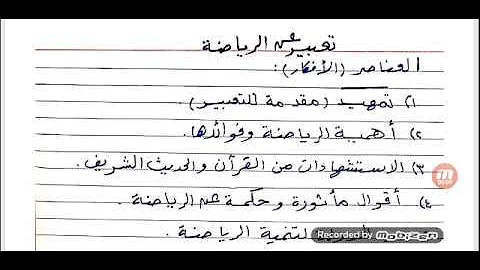 تعبير عن الرياضة
العناصر (الأفكار):
١) تمهيد (مقدمة للتعبير).
٢) أهمية الرياضة وفوائدها.
٣) الاستشهادات من القرآن والحديث الشريف.
٤) أقوال مأثورة وحكمة عن الرياضة.
لتنمية الرياضة.
Recorded by mobizen